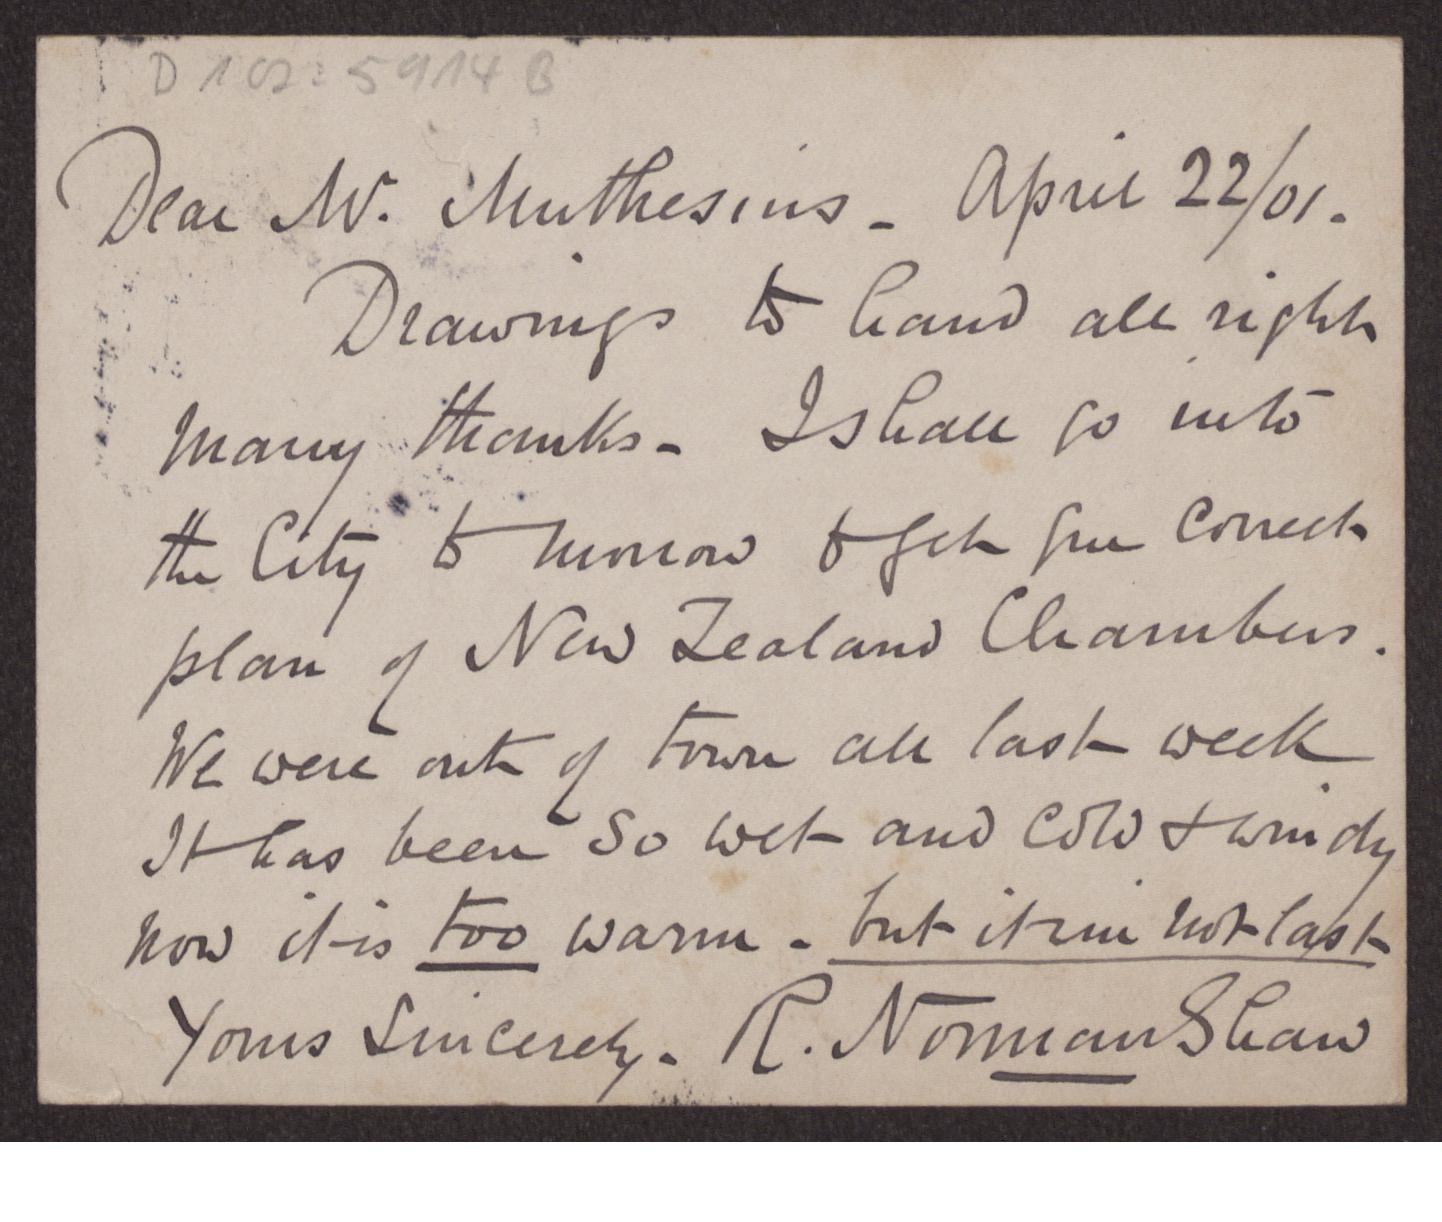 D 102: 5914 B
Dear Mr. Muthesius - April 22/01.
Drawings to hand all right
many thanks - I shall go into
the City to morrow to get you correct
plan of New Zealand Chambers.
We were out of town all last week
It has been so wet and cold & windy
now it is too warm - but it will not last
Yours Sincerely - R. Norman Shaw